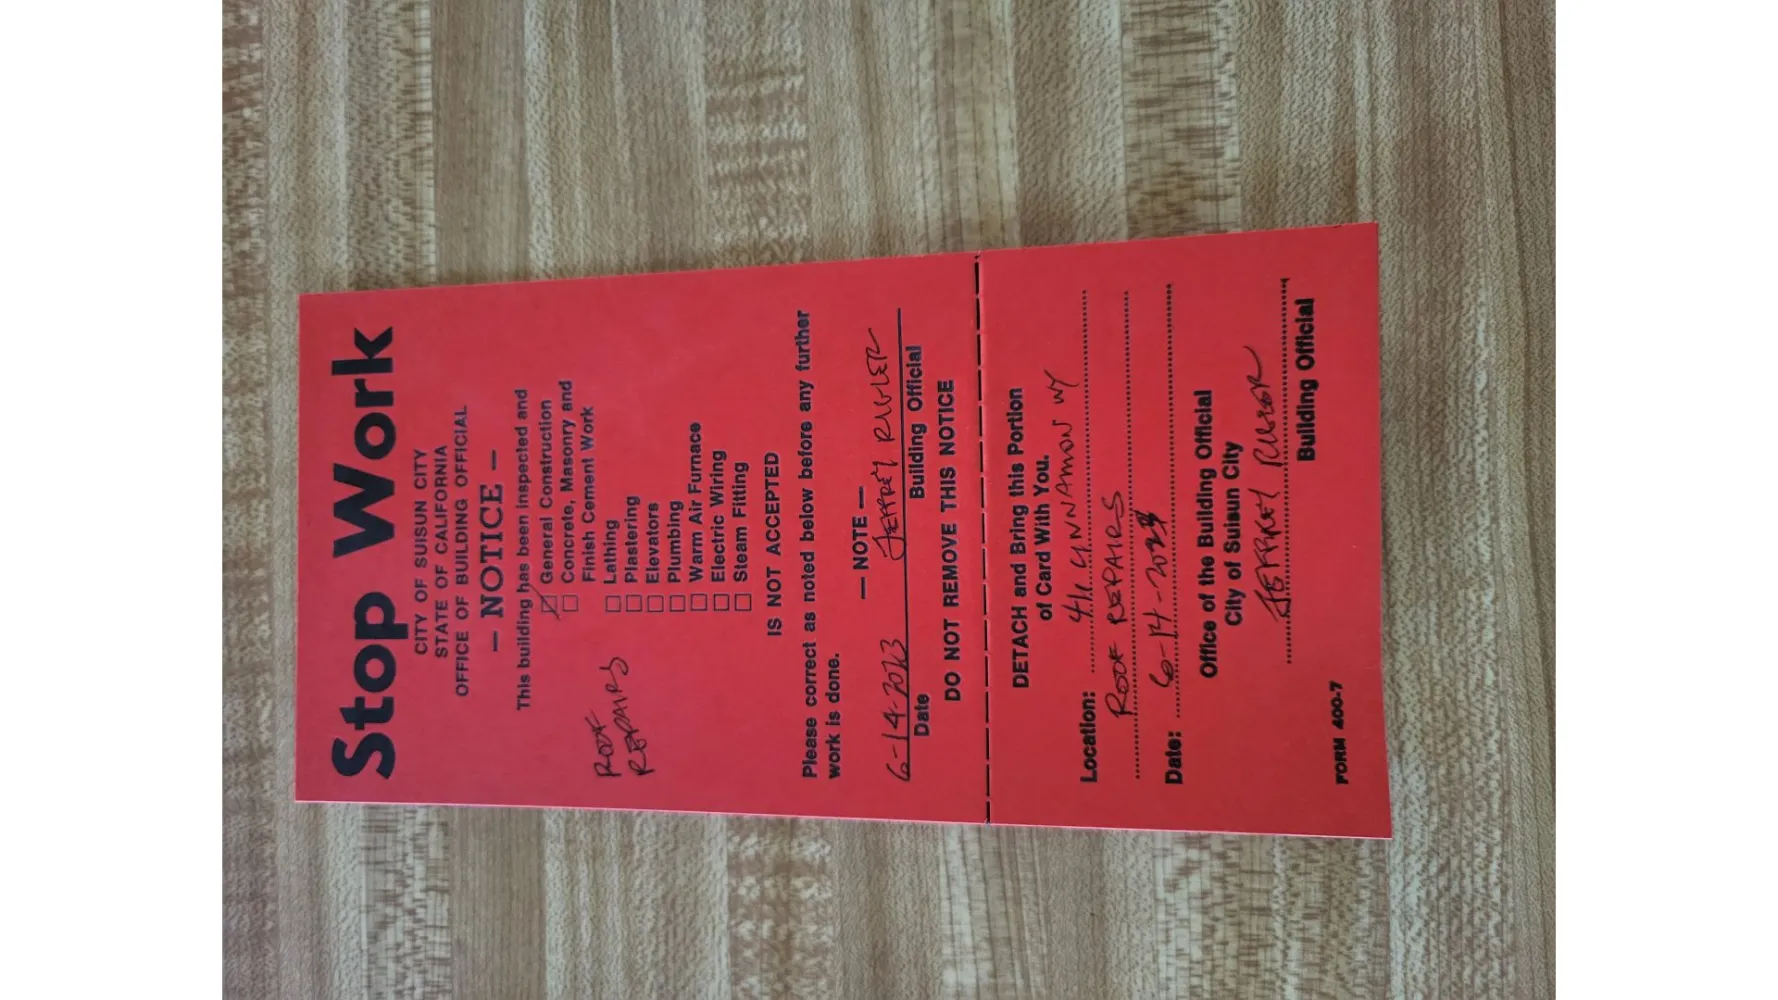 Stop Work
CITY OF SUISUN CITY
STATE OF CALIFORNIA
OFFICE OF BUILDING OFFICIAL
— NOTICE —
This building has been inspected and
General Construction
Concrete, Masonry and
Finish Cement Work
Lathing
Plastering
Elevators
Plumbing
Warm Air Furnace
Electric Wiring
Steam Fitting
ROOF
REPAIRS
IS NOT ACCEPTED
Please correct as noted below before any further
work is done.
— NOTE —
6-14-2023 JEFFREY
Date Building Official
DO NOT REMOVE THIS NOTICE
DETACH and Bring this Portion
of Card With You.
Location:
ROOF REPAIRS
Date: 6-14-2023
Office of the Building Official
City of Suisun City
JEFFREY
Building Official
FORM 400-7